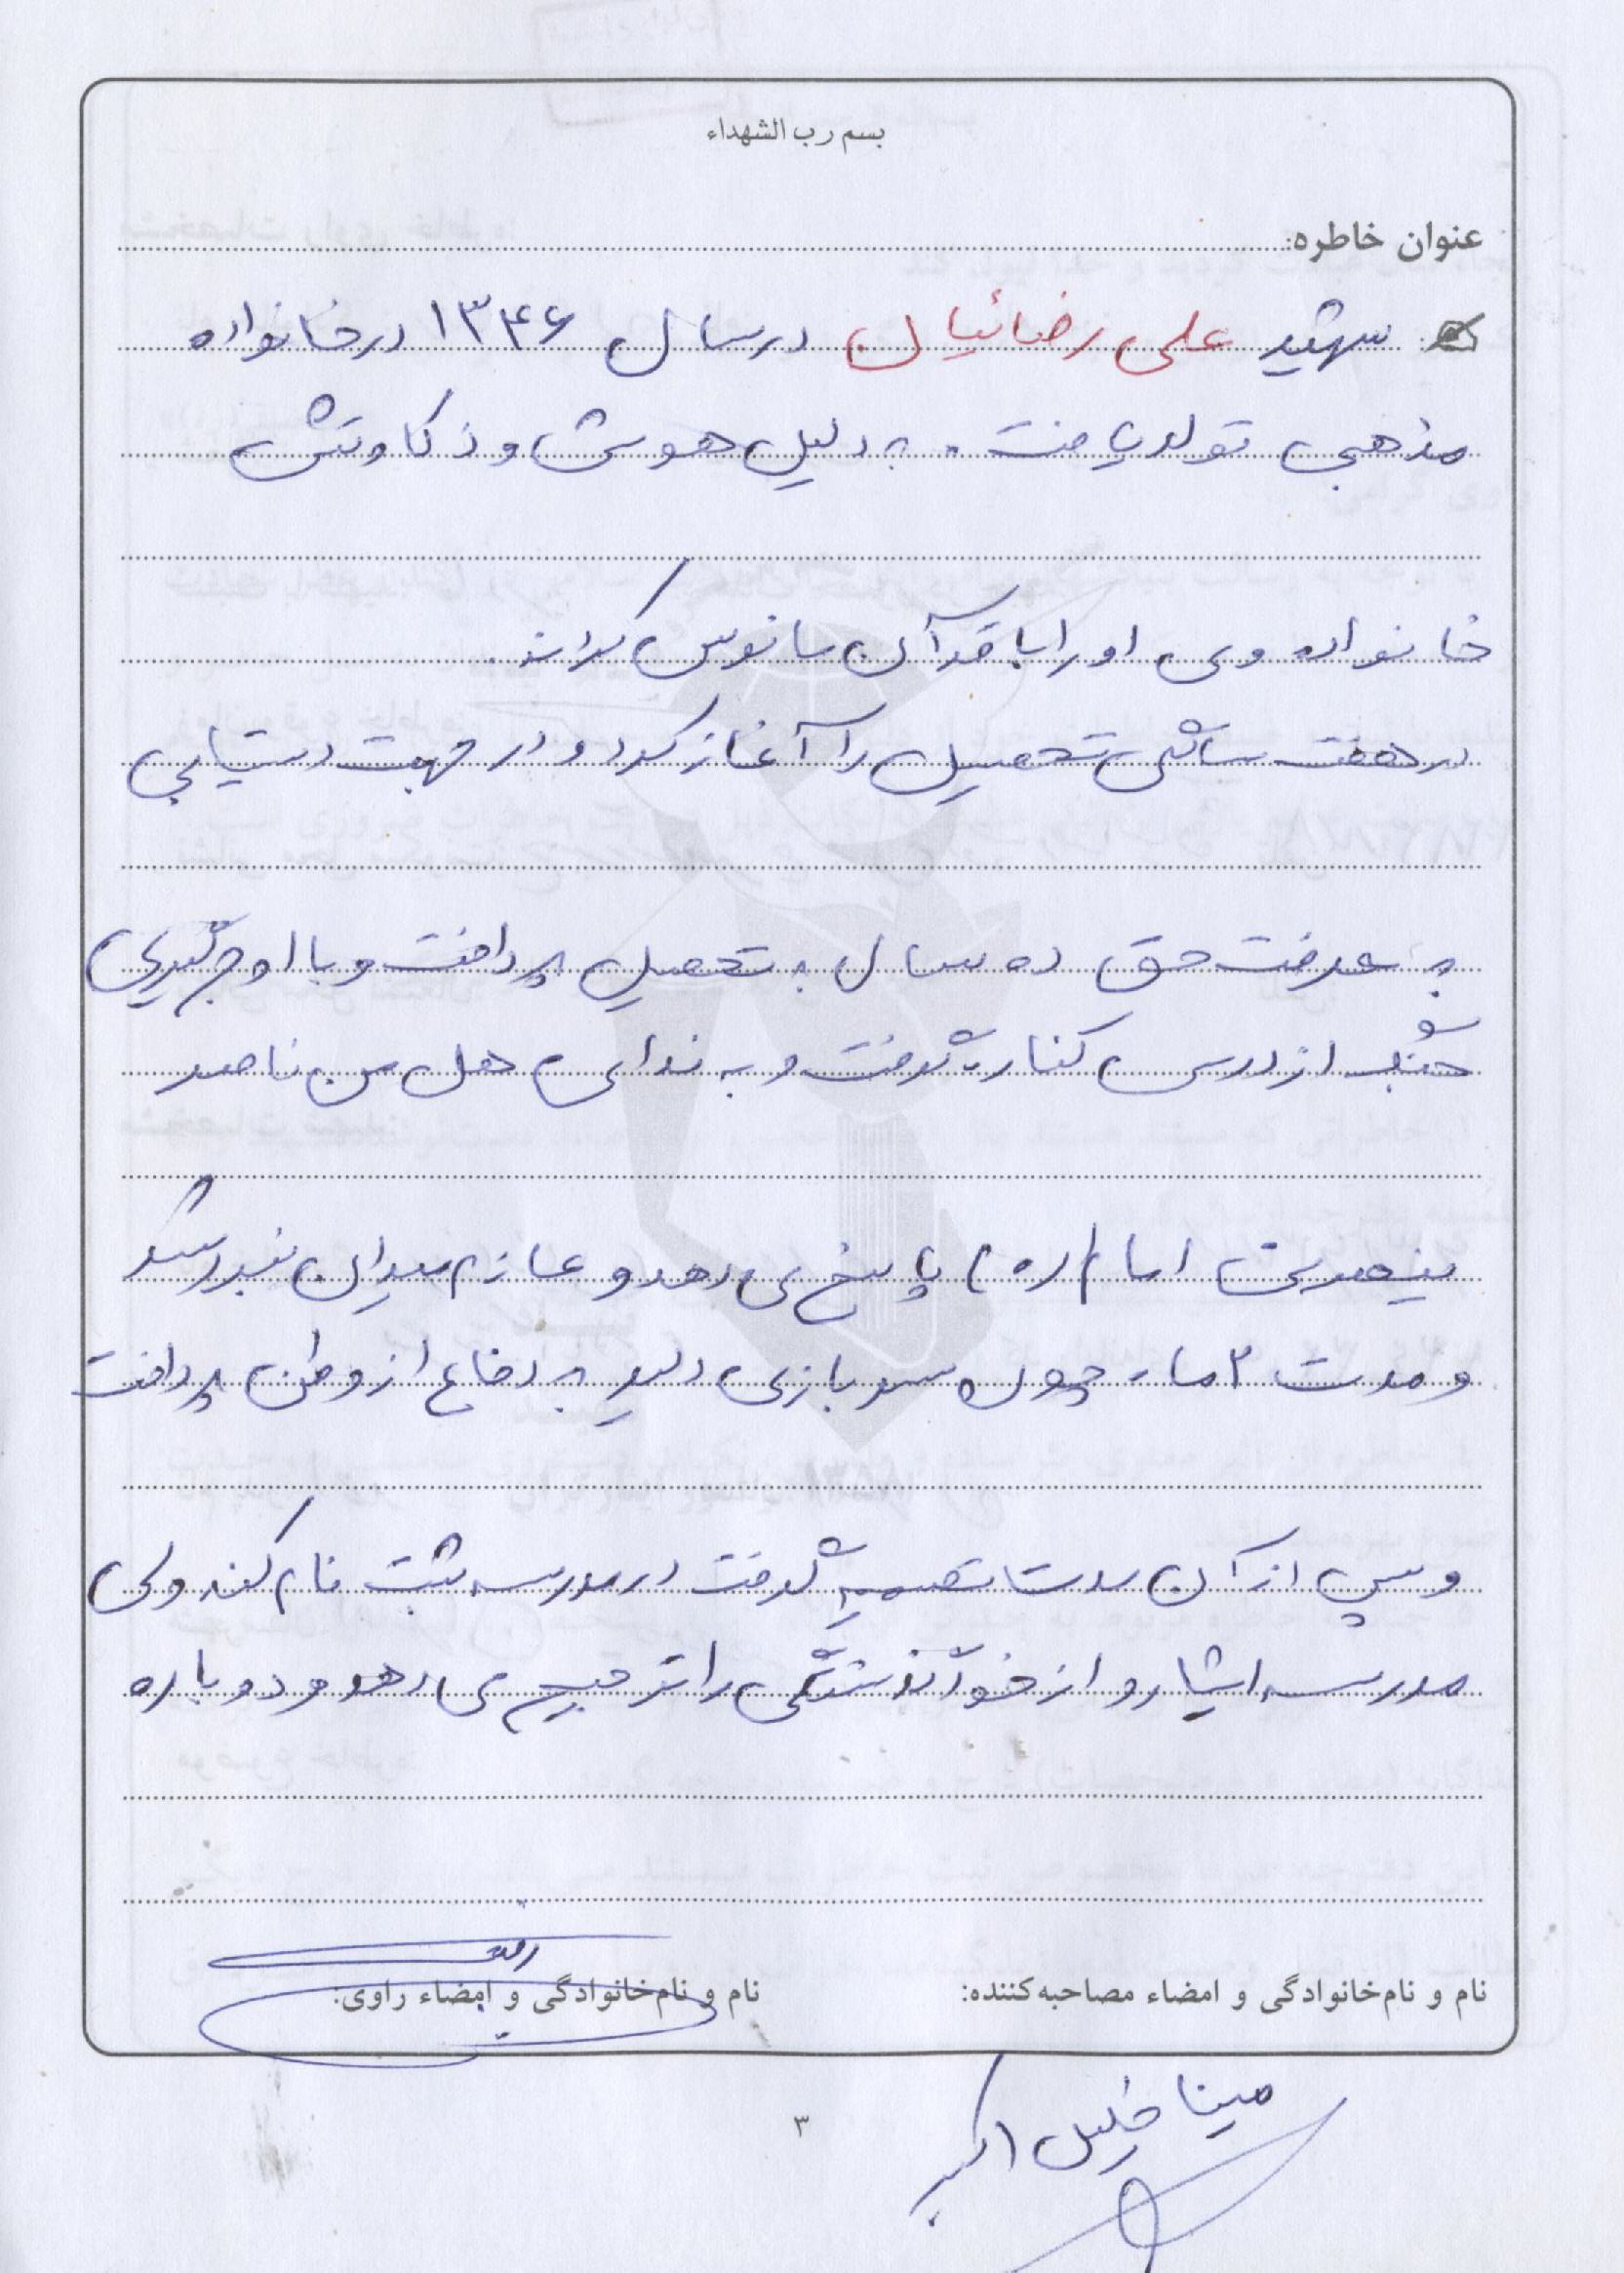 بسم رب الشهداء
عنوان خاطره:
شهید علی رضائیان در سال ۱۳۴۶ در خانواده
مذهبی تولد یافت. به دلیل هوش و ذکاوتش
خانواده وی او را با قرآن مانوس کردند.
در هفت سالگی تحصیل را آغاز کرد و در جهت دستیابی
به معرفت حق ده سال به تحصیل پرداخت و با اوج گیری
جنگ از درس کناره گرفت و به ندای هل من ناصر
ینصرنی امام (ره) پاسخ می دهد و عازم میدان نبرد شد
و مدت ۳ ماه چون سربازی دلیر به دفاع از وطن پرداخت
و پس از آن مدت تصمیم گرفت در مدرسه ثبت نام کند ولی
مدرسه ایثار و از خود گذشتگی را ترجیح می دهد و دوباره
نام و نام‌خانوادگی و امضاء مصاحبه‌کننده:
نام و نام‌خانوادگی و امضاء راوی:
مینا خلیل اکبر
۳